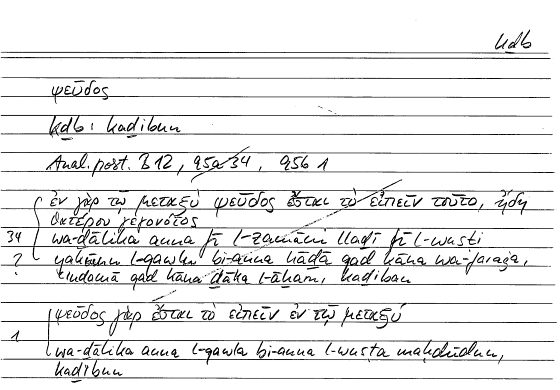 kdb
ψεῦδος
kdb : kadibun
Anal. post. B 12, 95a 34, 95b 1
ἐν γὰρ τῷ μεταξὺ ψεῦδος ἔσται τὸ εἰπεῖν τοῦτο, ἤδη
θατέρου γεγονότος
34 wa-ḏālika anna fī l-zamāni lladī fī l-wusṭi
? yakūnu l-qawlu bi-anna hāḏā qad kāna wa-faraġa,
qad kāna ḏāka l-āḫaru, kadiban
ψεῦδος γὰρ ἔσται τὸ εἰπεῖν ἐν τῷ μεταξύ
1 wa-ḏālika anna l-qawla bi-anna l-wusṭa maḥdūdun,
kadibun